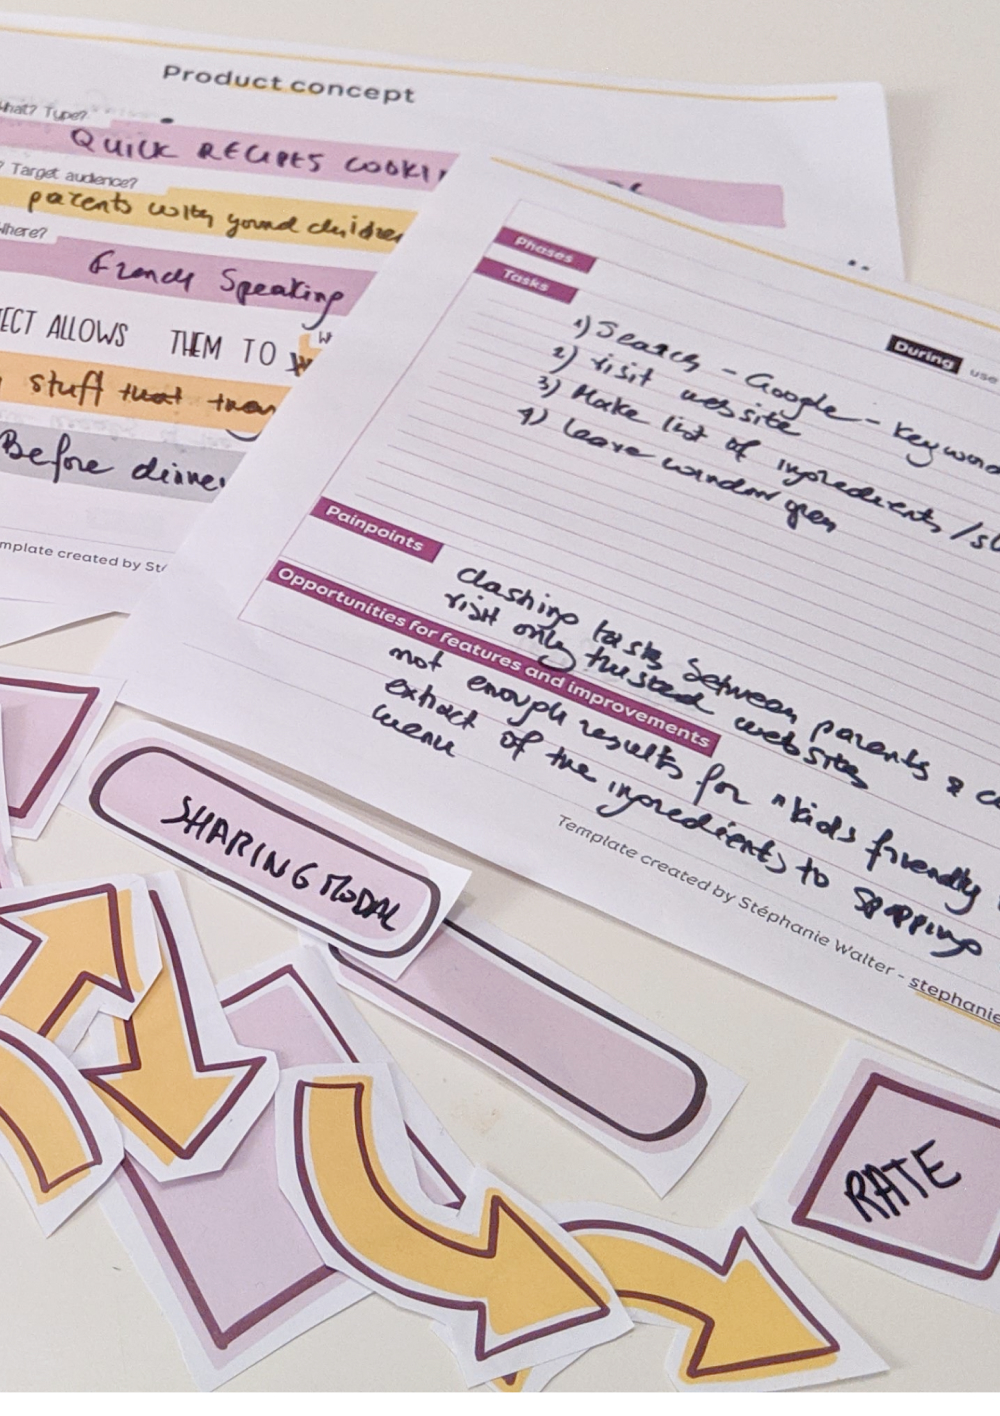 Product concept
What? Type?
QUICK RECIPES COOKI
? Target audience?
parents with yound children
Where?
French Speaking
ECT ALLOWS THEM TO W
stuff that
Before dinne
mplate created by St
Phases
Tasks
During use
1) Search - Google - Keyword
2) visit website
3) Make list of ingredients /
4) leave window open
Painpoints
clashing tasks between parents &
visit only trusted websites
Opportunities for features and improvements
not enough results for "kids friendly
extract of the ingredients to
menu
Template created by Stéphanie Walter - stephanie
SHARING MODAL
RATE